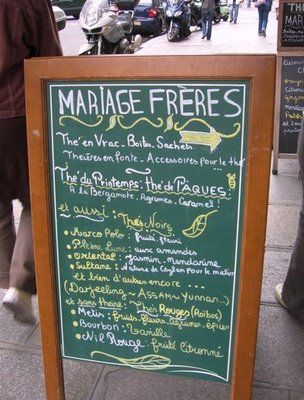 MARIAGE FRÈRES
Thé en Vrac - Boites - Sachets
Théières en fonte - Accessoires pour le thé
Thé du Printemps: thé de PÂQUES:
à la Bergamote, Agrums, Caramel!
et aussi: Thés Noirs:
Marco Polo: fruité, fleuri
Pleine Lune: aux amandes
Oriental: Jasmin, Mandarine
Sultane: Nature de Ceylan pour le matin
et bien d'autres encore ...
(Darjeeling ~ ASSAM ~ Yunnan..)
et sans théine: Thés Rouges (Roïbos)
Metis: fruits, fleurs, agrumes, épices
Bourbon: Vanille
Nil Rouge: fruité Citronné